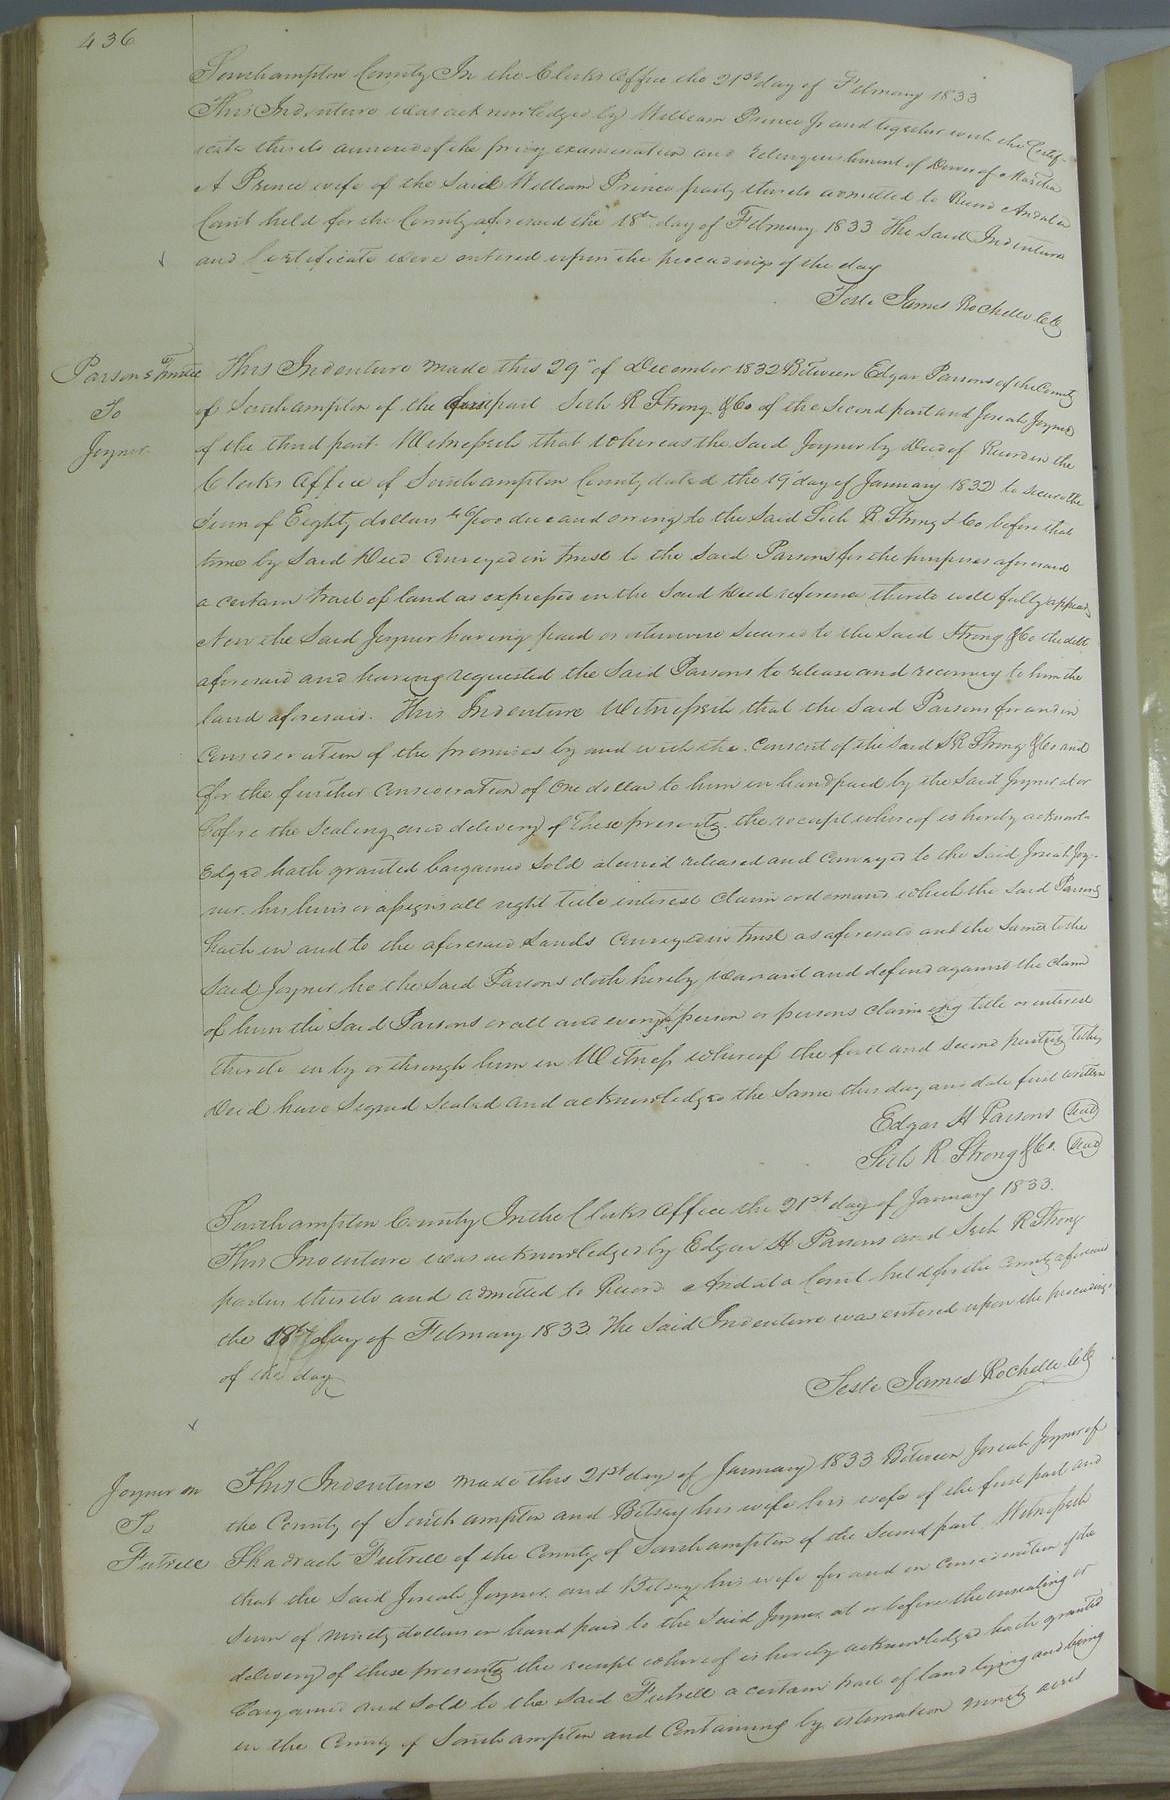 436
Southampton County In the Clerks Office the 21st day of February 1833
This Indenture was acknowledged by William Prince Jr and together with the Certif-
icate thereto annexed of the privy examination and relinquishment of Dower of Martha
A Prince wife of the said William Prince party thereto admitted to Record And at a
Court held for the County aforesaid the 18th day of February 1833 The Said Indenture
and Certificate were entered upon the proceedings of the day
Teste James Rochelle Clk
Parsons Trustee
To
Joyner
This Indenture made this 29th of December 1832 Between Edgar Parsons of the County
of Southampton of the first part Seth R Strong & Co of the Second part and Josiah Joyner
of the third part. Witnesseth that whereas the Said Joyner by Deed of Record in the
Clerks Office of Southampton County dated the 19th day of January 1832 to secure the
Sum of Eighty dollars 46/100 due and owing to the Said Seth R Strong & Co before that
time by Said Deed Conveyed in trust to the Said Parsons for the purposes aforesaid
a certain tract of land as expressed in the Said Deed reference thereto will fully appear
Now the Said Joyner having paid or otherwise secured to the Said Strong & Co the debt
aforesaid and having requested the Said Parsons to release and reconvey to him the
land aforesaid. This Indenture Witnesseth that the Said Parsons for and in
Consideration of the premises by and with the Consent of the Said S R Strong & Co and
for the further Consideration of One dollar to him in hand paid by the Said Joyner at or
before the Sealing and delivery of These presents the receipt whereof is hereby acknowl-
edged hath granted bargained Sold aliened released and Conveyed to the Said Josiah Joy-
ner his heirs or assigns all right title interest Claim or demand which the Said Parsons
hath in and to the aforesaid Lands Conveyed in trust as aforesaid and the Same to the
Said Joyner he the Said Parsons doth hereby warrant and defend against the claim
of him the Said Parsons or all and every person or persons claiming title or interest
thereto in by or through him in Witness whereof the first and second parties to this
Deed have Signed Sealed and acknowledged the Same this day and date first written
Edgar H Parsons Seal
Seth R Strong & Co. Seal
Southampton County In the Clerks Office the 21st day of January 1833.
This Indenture was acknowledged by Edgar H Parsons and Seth R Strong
parties thereto and admitted to Record And at a Court held for the County aforesaid
the 18th day of February 1833 The Said Indenture was entered upon the proceedings
of the day
Teste James Rochelle Clk
Joyner &c
To
Futrell
This Indenture made this 21st day of January 1833 Between Josiah Joyner of
the County of Southampton and Betsey his wife his wife of the first part and
Shadrach Futrell of the County of Southampton of the Second part Witnesseth
that the Said Josiah Joyner and Betsey his wife for and in Consideration of the
Sum of ninety dollars in hand paid to the Said Joyner at or before the ensealing or
delivery of these presents the receipt whereof is hereby acknowledged hath granted
bargained and Sold to the Said Futrell a certain tract of land lying and being
in the County of Southampton and Containing by estimation ninety acres